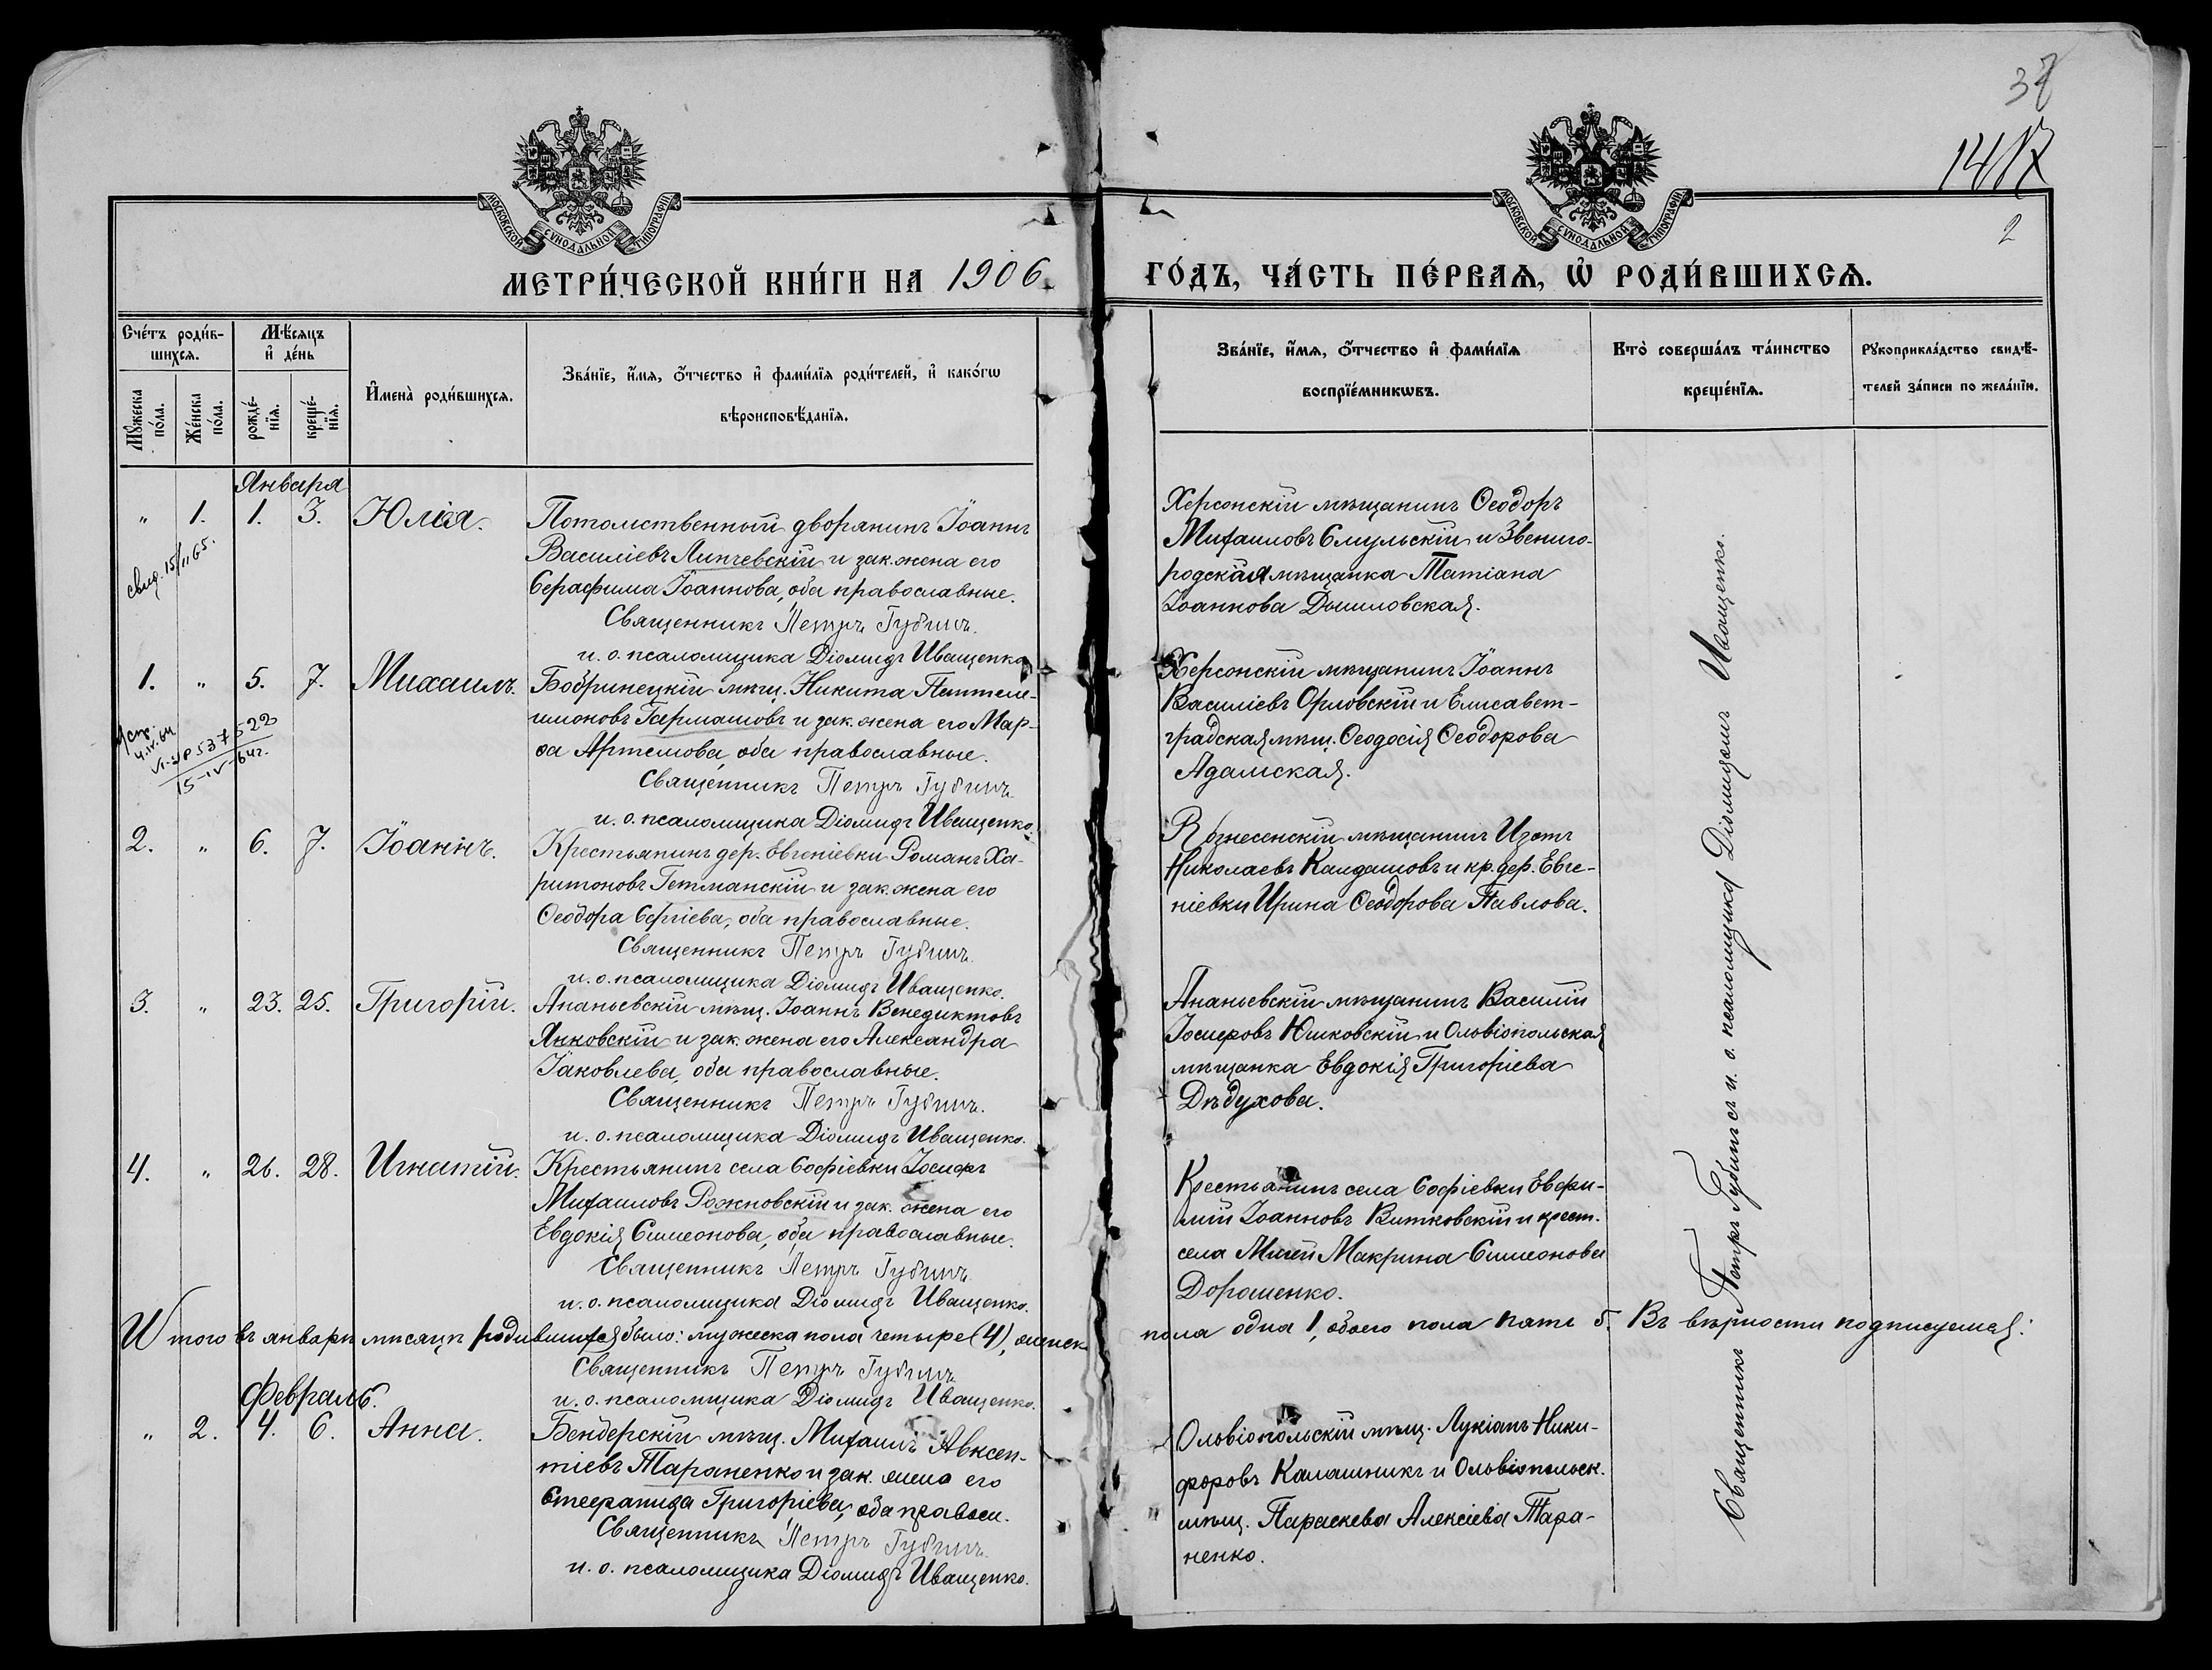 38
14
2
МОСКОВСКОЙ СѴНОДАЛЬНОЙ ТИПОГРАФІИ
МОСКОВСКОЙ СѴНОДАЛЬНОЙ ТИПОГРАФІИ
МЕТРИ́ЧЕСКОЙ КНИ́ГИ НА 1906
ГО́ДЪ, ЧА́СТЬ ПЕ́РВАѦ, Ѽ РОДИ́ВШИХСѦ.
Сче́тъ роди́в-
шихсѧ.
Мѣ́сѧцъ
и҆ де́нь
Мꙋ́жеска
по́ла.
Же́нска
по́ла.
рожде́-
нїѧ.
креще́-
нїѧ.
И҆мена̀ роди́вшихсѧ.
Зва́нїе, и҆́мѧ, ѻ҆́тчество и҆ фами́лїѧ роди́телей, и҆ како́гѡ
вѣроисповѣ́данїѧ.
Зва́нїе, и҆́мѧ, ѻ҆́тчество и҆ фами́лїѧ
воспрїе́мникѡвъ.
Кто̀ соверша́лъ та́инство
креще́нїѧ.
Рꙋкоприкла́дство свидѣ́-
телей за́писи по жела́нїю.
Января
" 1. 1. 3. Юлія.
свид. 15/II 65.
Потомственный дворянинъ Іоаннъ
Василіевъ Липчевскій и зак. жена его
Серафима Іоаннова, оба православные.
Священникъ Петръ Губинъ.
и. о. псаломщика Діомидъ Иващенко
Херсонскій мѣщанинъ Ѳеодоръ
Михаиловъ Смульскій и Звениго-
родская мѣщанка Татіана
Іоаннова Дышловская.
1. " 5. 7. Михаилъ.
537522
15-IV-64г.
Бобринецкій мѣщ. Никита Пантеле-
имоновъ Гармашовъ и зак. жена его Мар-
ѳа Артемова, оба православные.
Священникъ Петръ Губинъ
и. о. псаломщика Діомидъ Иващенко.
Херсонскій мѣщанинъ Іоаннъ
Василіевъ Орловскій и Елисавет-
градская мѣщ. Ѳеодосія Ѳеодорова
Адамская.
2. " 6. 7. Іоаннъ.
Крестьянинъ дер. Евгеніевки Романъ Ха-
ритоновъ Гетманскій и зак. жена его
Ѳеодора Сергіева, оба православные.
Священникъ Петръ Губинъ.
и. о. псаломщика Діомидъ Иващенко.
Вознесенскій мѣщанинъ Изотъ
Николаевъ Кандашовъ и кр. дер. Евге-
ніевки Ирина Ѳеодорова Павлова.
3. " 23. 25. Григорій.
Ананьевскій мѣщ. Іоаннъ Венедиктовъ
Янковскій и зак. жена его Александра
Іаковлева, оба православные.
Священникъ Петръ Губинъ.
и. о. псаломщика Діомидъ Иващенко.
Ананьевскій мѣщанинъ Василій
Іосифовъ Юшковскій и Ольвіопольская
мѣщанка Евдокія Григоріева
Дѣдухова.
4. " 26. 28. Игнатій.
Крестьянинъ села Софіевки Іосифъ
Михаиловъ Рожновскій и зак. жена его
Евдокія Симеонова, оба православные.
Священникъ Петръ Губинъ
и. о. псаломщика Діомидъ Иващенко.
Крестьянинъ села Софіевки Евфи-
мій Іоанновъ Витковскій и крест.
села Мигеи Макрина Симеонова
Дорошенко.
Итого въ январѣ мѣсяцѣ родившихся было: мужеска пола четыре (4), женск.
пола одна 1, обоего пола пять 5. Въ вѣрности подписуемся:
Священникъ Петръ Губинъ
и. о. псаломщика Діомидъ Иващенко.
Февраль.
" 2. 4. 6. Анна.
Бендерскій мѣщ. Михаилъ Авксен-
тіевъ Тараненко и зак. жена его
Стефанида Григоріева, оба правосл.
Священникъ Петръ Губинъ
и. о. псаломщика Діомидъ Иващенко.
Ольвіопольскій мѣщ. Лукіанъ Ники-
форовъ Калашникъ и Ольвіопольск.
мѣщ. Параскева Алексіева Тара-
ненко.
Священникъ Петръ Губинъ съ и. о. псаломщика Діомидомъ Иващенко.